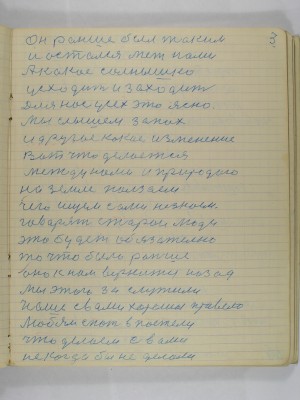 Он раньше был таким
и остался меж нами
А какое солнышко
усходит и заходит
Для нос усех это ясно.
Мы слышем запах
и друзье какое изменение
Вот что делается
между нами и природого
на земле ползаем
чего ищем сами незноем.
говорят старои люди
это будет обезательно
то что было ранше
оно к нам вернится назад
мы этого заслужили
с вами
Любям спат в постели
что делаем с вами
некогда бы не делали